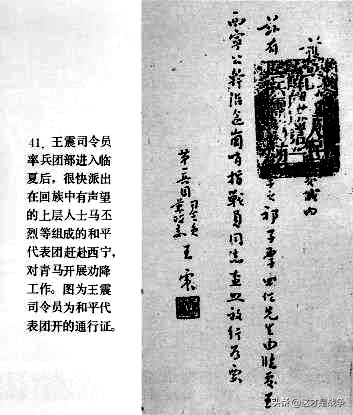 41. 王震司令员
率兵团部进入临
夏后，很快派出
在回族中有声望
的上层人士马丕
烈等组成的和平
代表团赶赴西宁，
对青马开展劝降
工作。图为王震
司令员为和平代
表团开的通行证。
兹有
祁子厚四位先生由临夏至
西宁公干沿途岗哨指战员同志查照放行为要
第一兵团司令员
兼政委 王震
头条 @这才是战争